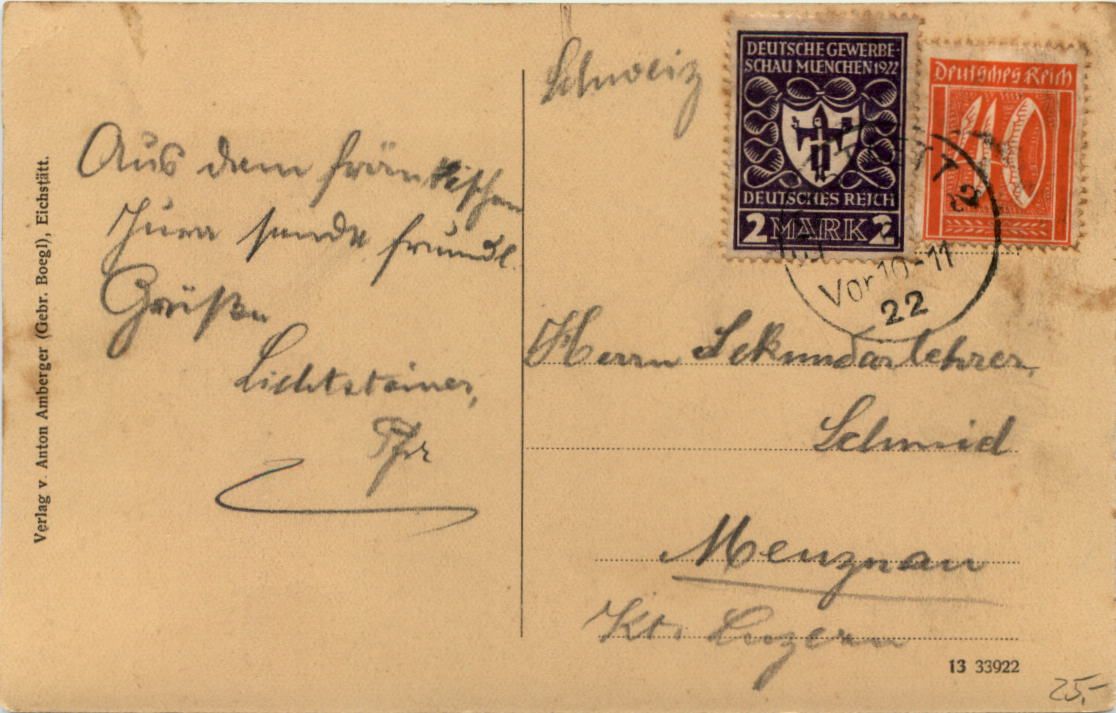 Verlag v. Anton Amberger (Gebr. Boegl), Eichstätt.
Aus dem fränkischen
Jura sendet freundl.
Grüße
Lichtsteiner,
Pfr
Schweiz
DEUTSCHE GEWERBE-
SCHAU MUENCHEN 1922
DEUTSCHES REICH
2 MARK 2
Deutsches Reich
40
Vor 10-11
22
Herrn Sekundarlehrer,
Schmid
Menznau
Kt. Luzern
13 33922
25,-